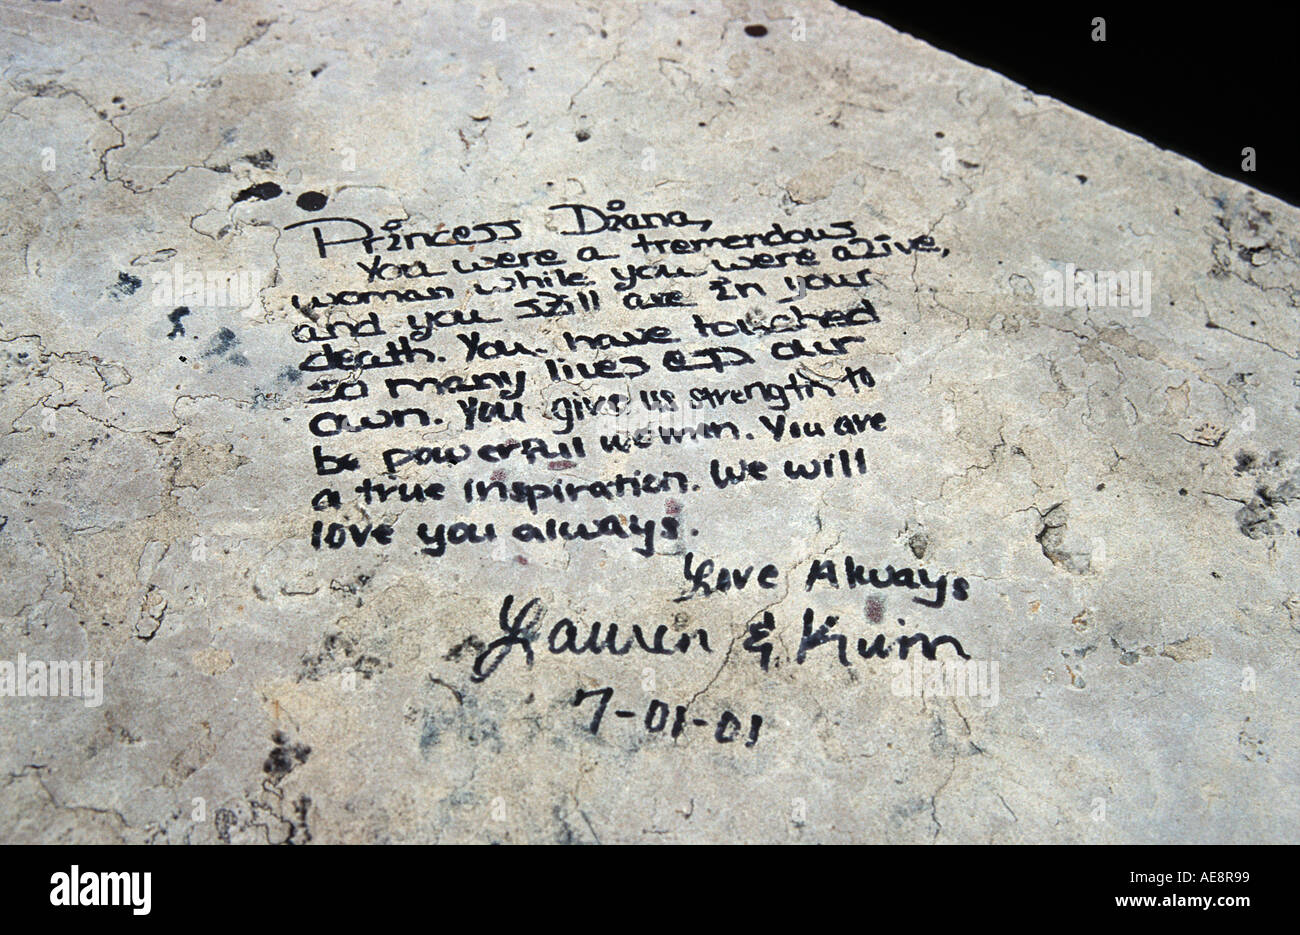 Princess Diana,
You were a tremendous
woman while you were alive,
and you still are in your
death. You have touched
so many lives our
own. You give us strength to
be powerfull woman. You are
a true inspiration. We will
love you always.
Love Always
Lauren & Kum
7-01-01
a alamy
alamy
a
a
a
a
a
a
alamy
Image ID: AE8R99
www.alamy.com